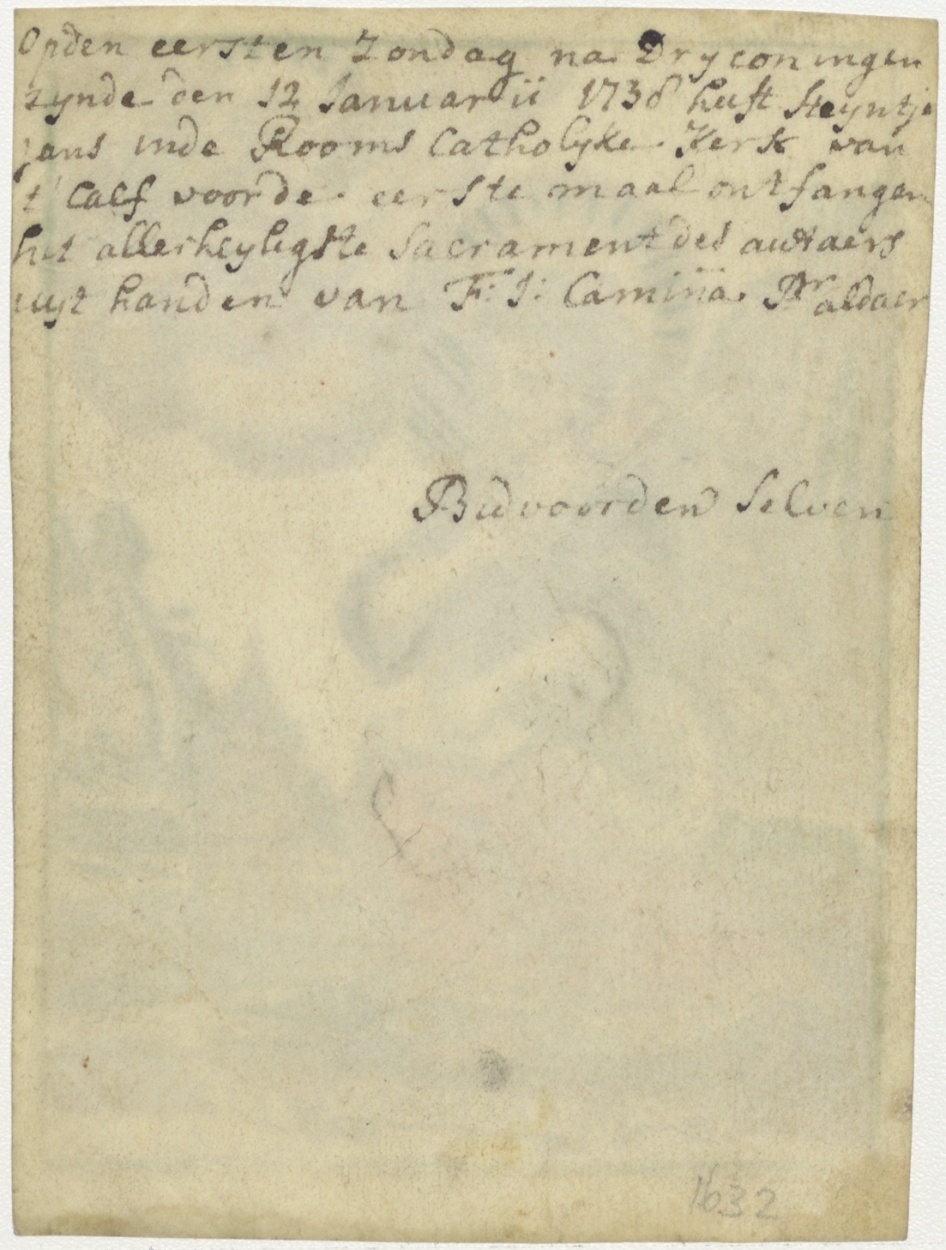 Opden eersten Zondag na Dryconingen
zynde den 12 Januarii 1738 heeft Steyntje
jans inde Rooms Catholyke Kerk van
t' Calf voorde eerste maal ontfangen
het allerheyligste Sacrament des autaers
uyt handen van F: J: Pr aldaer
Bid voorden Selven
1632